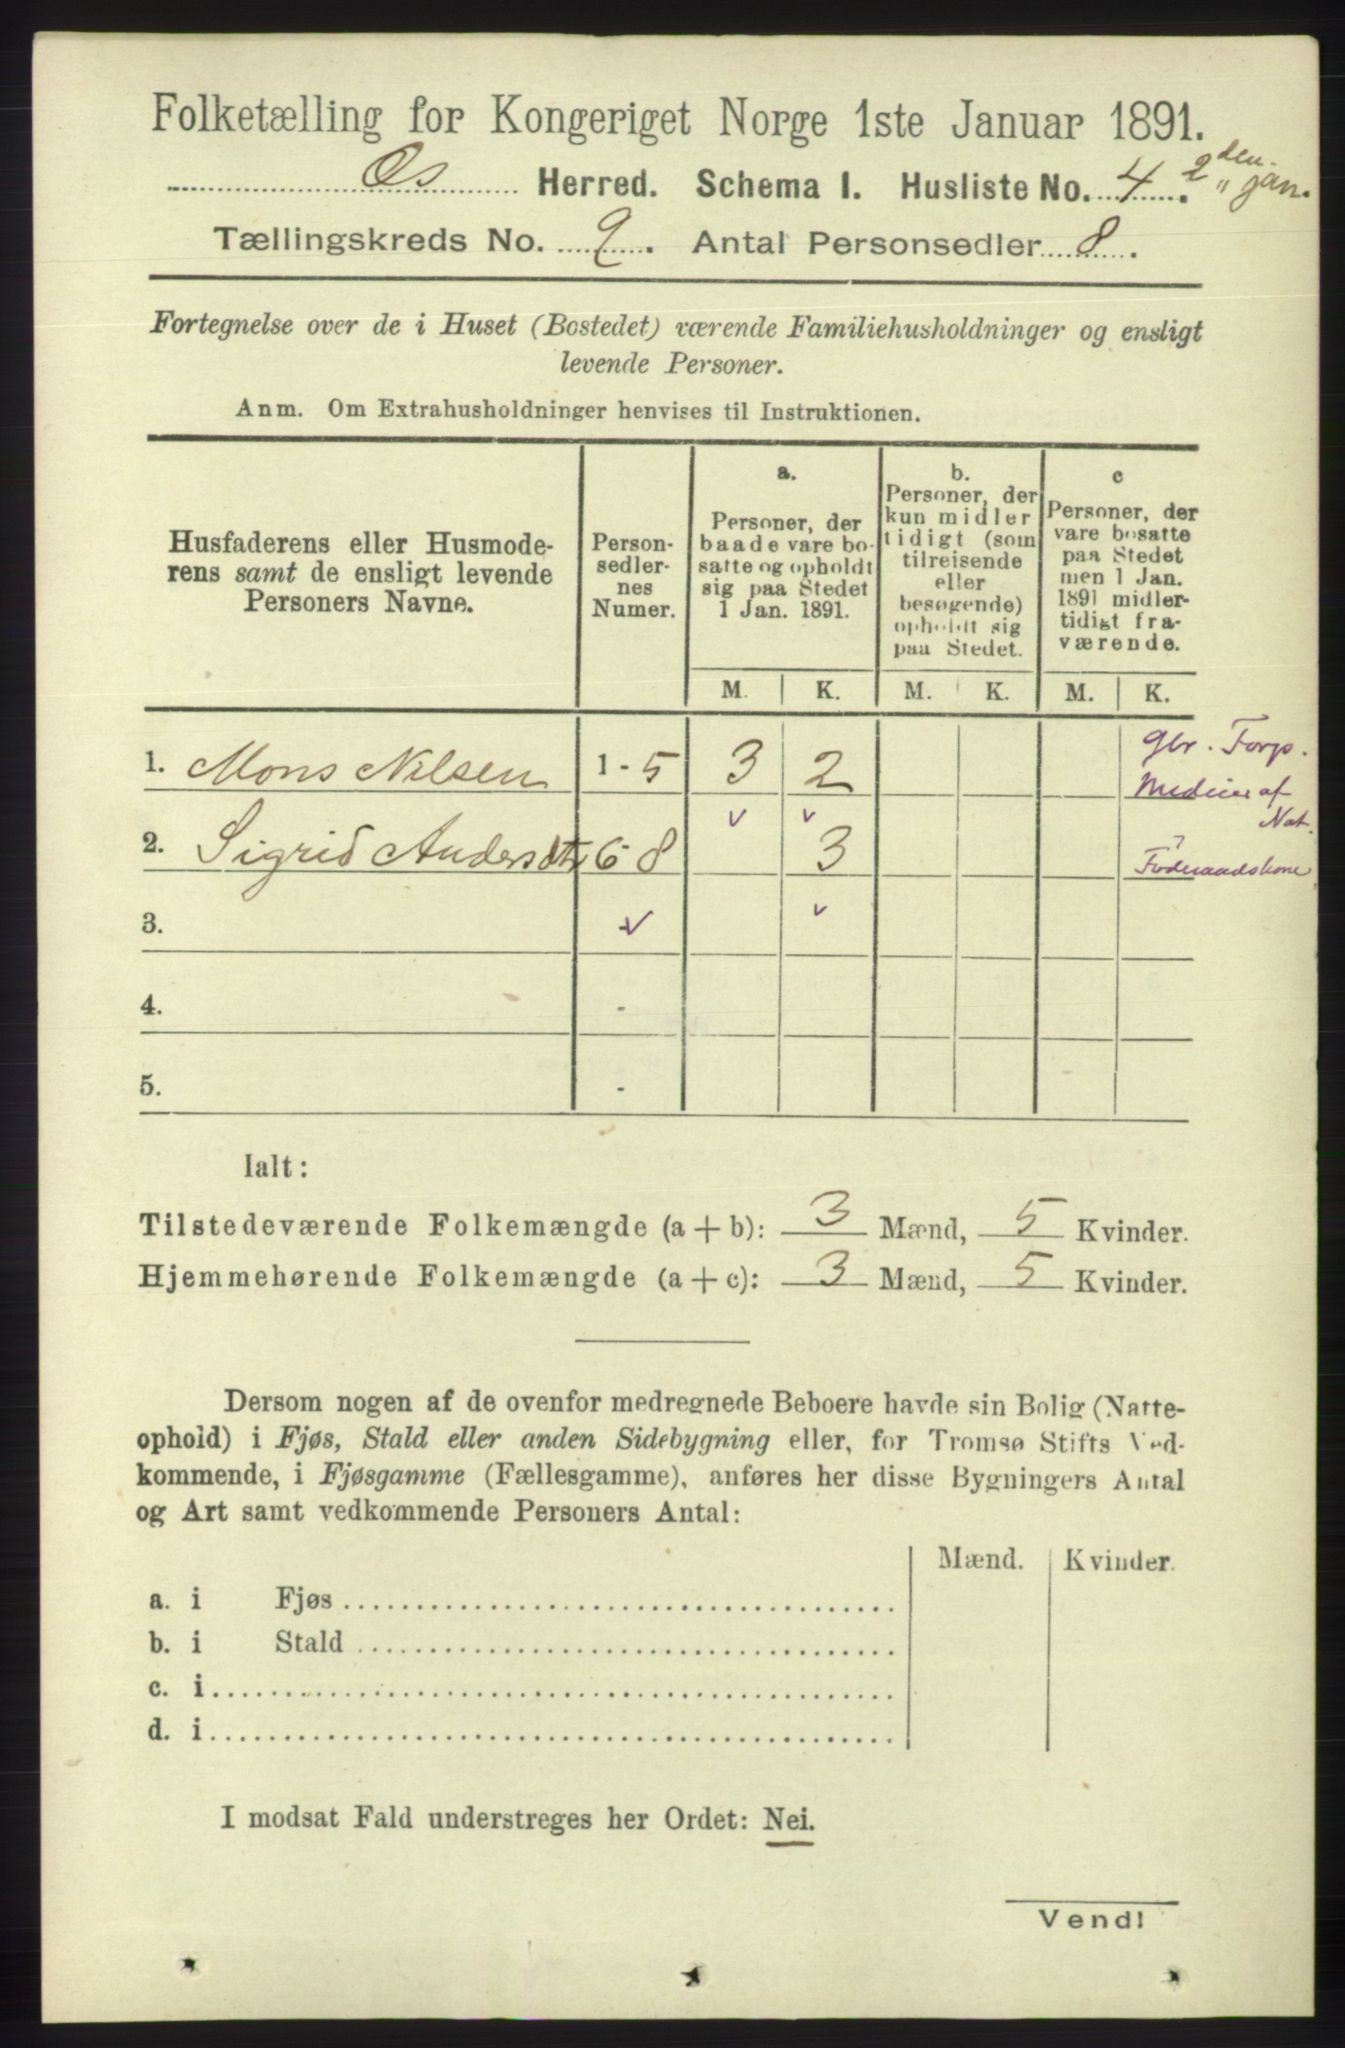 Folketælling for Kongeriget Norge 1ste Januar 1891.
Os Herred. Schema I. Husliste No. 4. 2den Jan.
Tællingskreds No. 9. Antal Personsedler 8.
Fortegnelse over de i Huset (Bostedet) værende Familiehusholdninger og ensligt
levende Personer.
Anm. Om Extrahusholdninger henvises til Instruktionen.
Husfaderens eller Husmode-
rens samt de ensligt levende
Personers Navne.
Person-
sedler-
nes
Numer.
a.
Personer, der
baade vare bo-
satte og opholdt
sig paa Stedet
1 Jan. 1891.
b.
Personer, der
kun midler
tidigt (som
tilreisende
eller
besøgende)
opholdt sig
paa Stedet.
c
Personer, der
vare bosatte
paa Stedet
men 1 Jan.
1891 midler-
tidigt fra-
værende.
M. K. M. K. M. K.
1. Mons Nilsen 1 - 5 3 2 Gbr. Forp.
af Nat.
2. Sigrid Andersdtr 6 - 8 3 Føderaadskone
3. -
4. -
5. -
Ialt:
Tilstedeværende Folkemængde (a + b): 3 Mænd, 5 Kvinder.
Hjemmehørende Folkemængde (a + c): 3 Mænd, 5 Kvinder.
Dersom nogen af de ovenfor medregnede Beboere havde sin Bolig (Natte-
ophold) i Fjøs, Stald eller anden Sidebygning eller, for Tromsø Stifts Ved-
kommende, i Fjøsgamme (Fællesgamme), anføres her disse Bygningers Antal
og Art samt vedkommende Personers Antal:
Mænd. Kvinder.
a. i Fjøs
b. i Stald
c. i
d. i
I modsat Fald understreges her Ordet: Nei.
Vend!